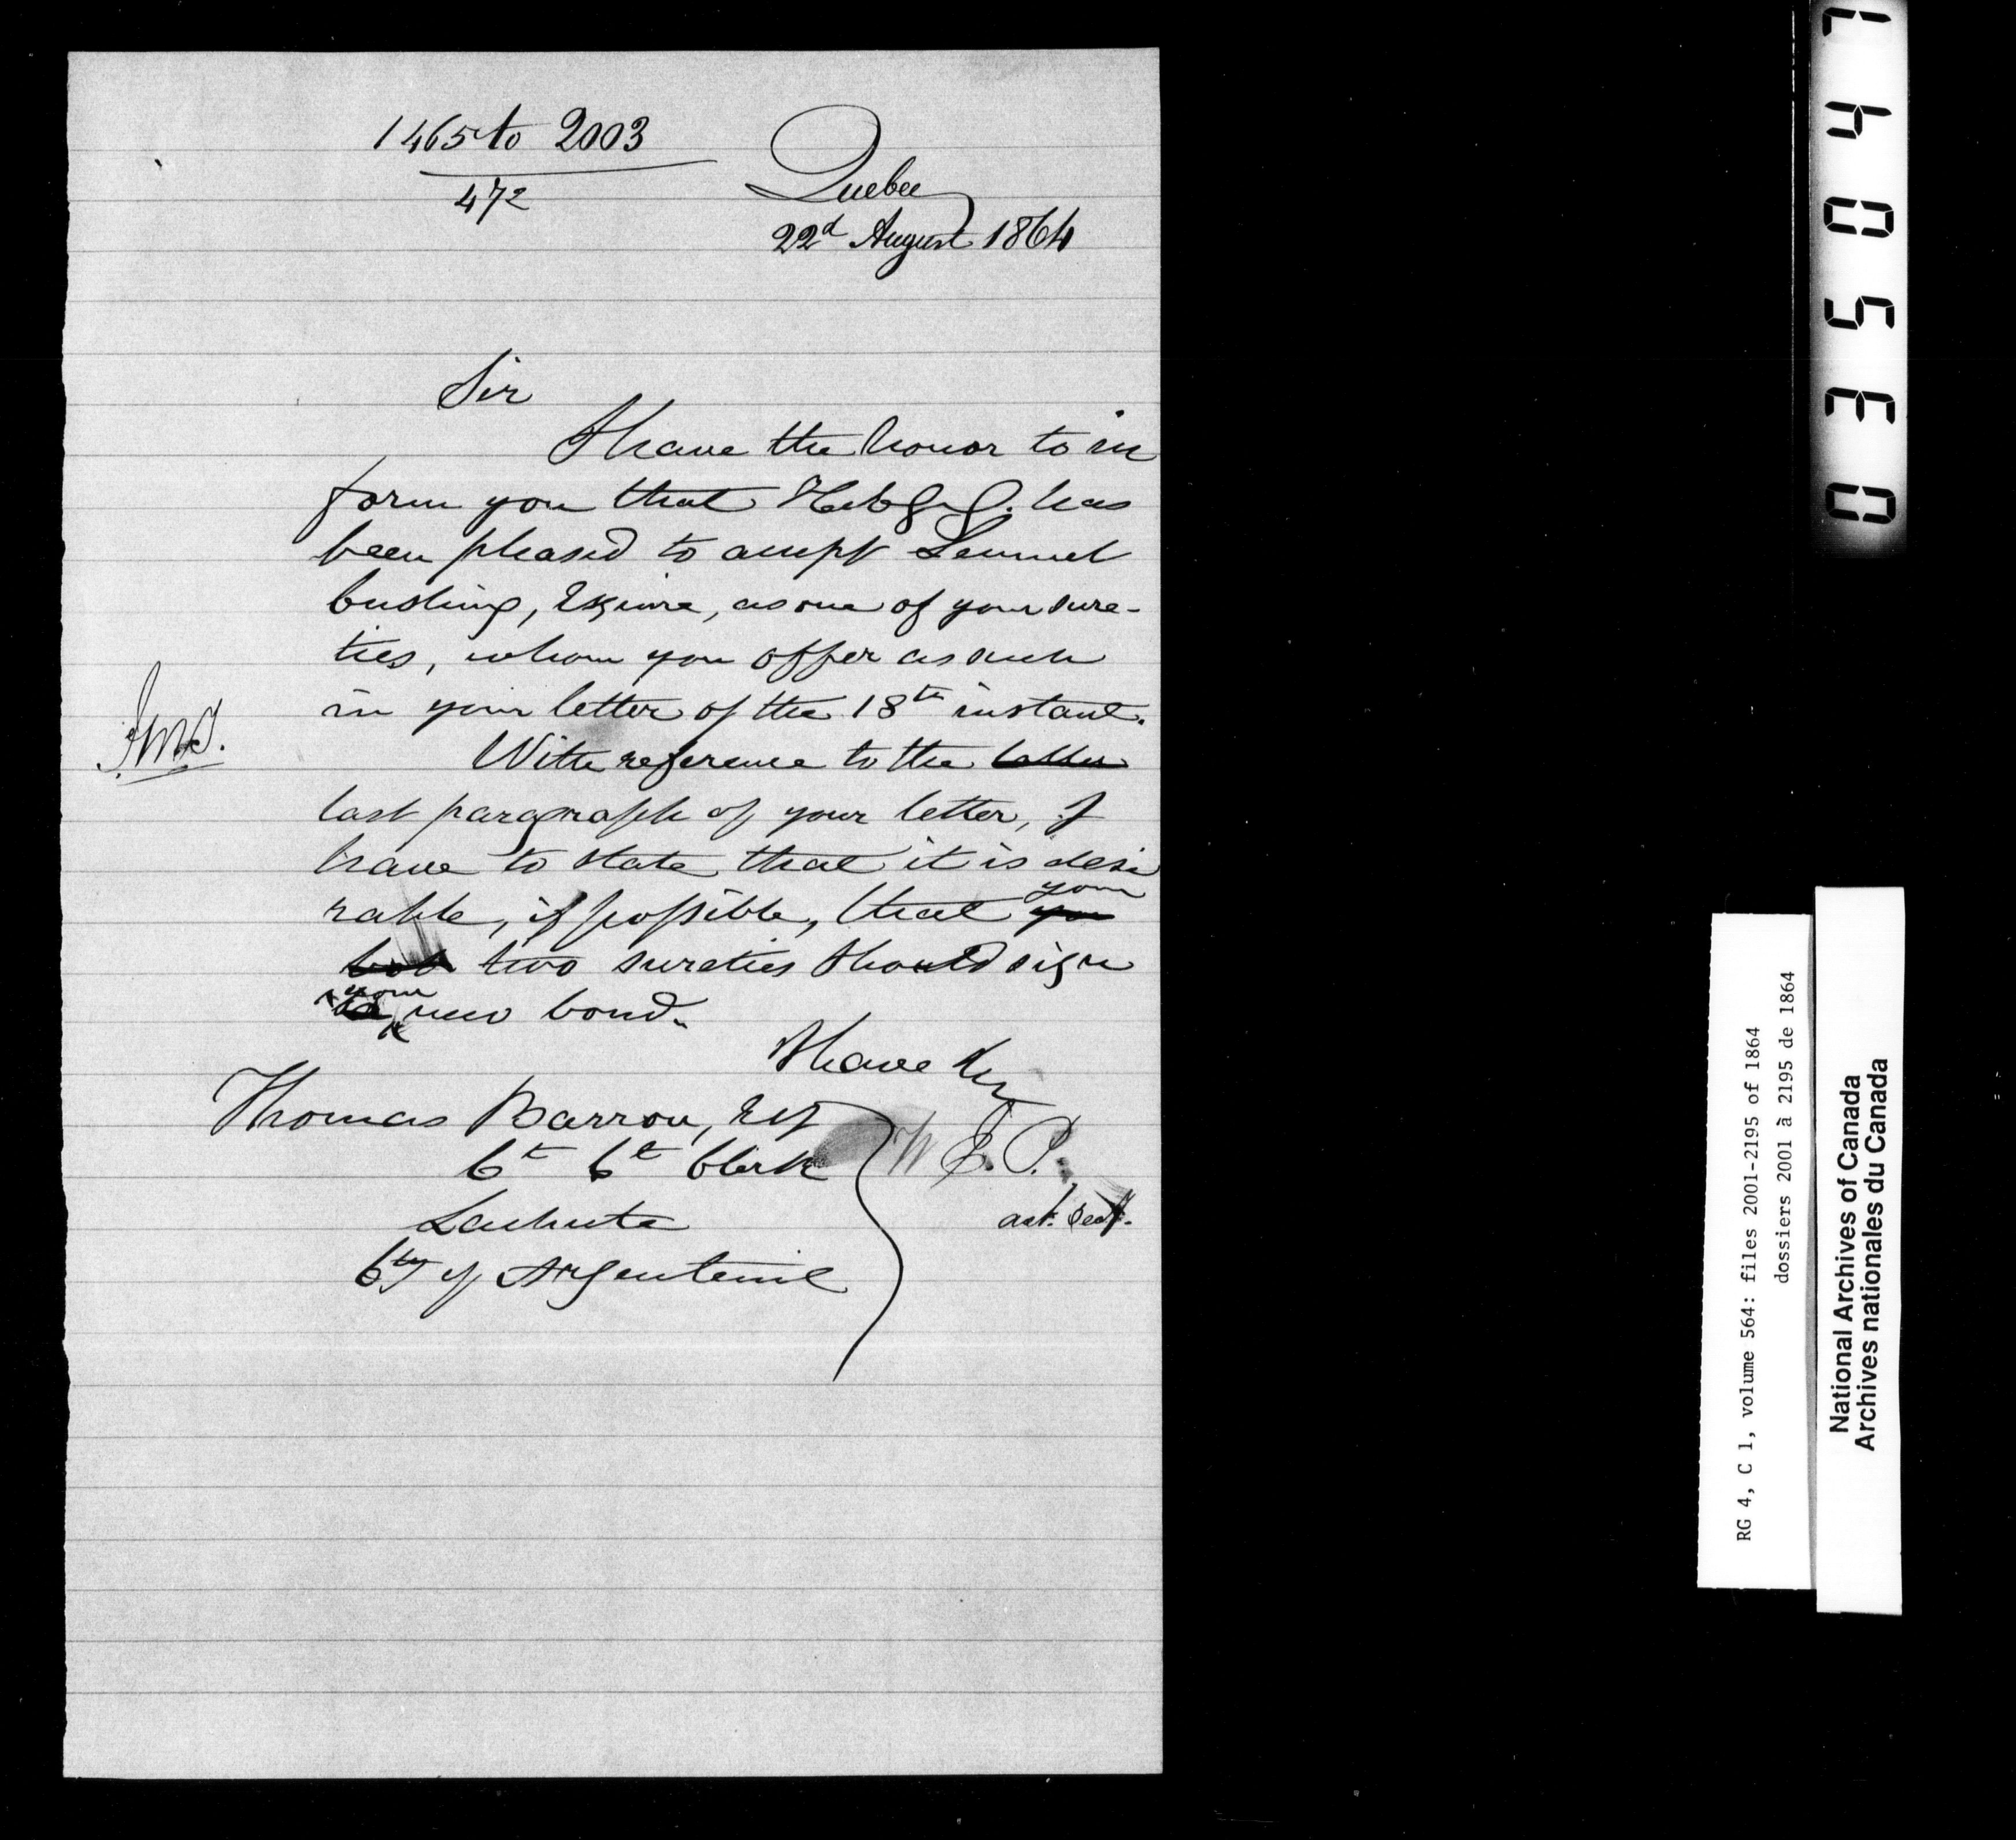 1465 to 2003
472
Quebec
22d August 1864
Sir
I have the honor to in
form you that H.E. G.G. has
been pleased to accept Lemuel
Cushing, Esquire, as one of your sure-
ties, whom you offer as such
in your letter of the 18th instant.
With reference to the
last paragraph of your letter, I
have to state that it is desi
rable, if possible, that your
two sureties should sign
your new bond.
I have &c
Thomas Barron, Esq
Ct Ct Clerk
Lachute
Cty of Argenteuil
W E. P.
act. Secy.
035047
RG 4, C 1, volume 564: files 2001-2195 of 1864
dossiers 2001 à 2195 de 1864
National Archives of Canada
Archives nationales du Canada